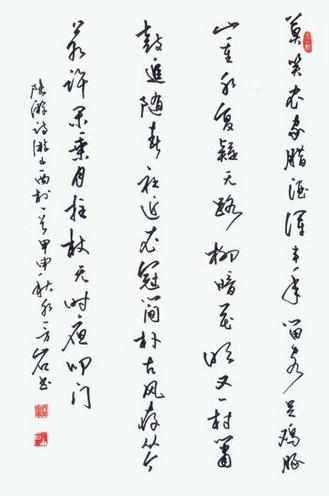 莫笑农家腊酒浑丰年留客足鸡豚
山重水复疑无路柳暗花明又一村箫
鼓追随春社近衣冠简朴古风存从今
若许闲乘月拄杖无时夜叩门
陆游诗游山西村一首甲申秋水一方岩书